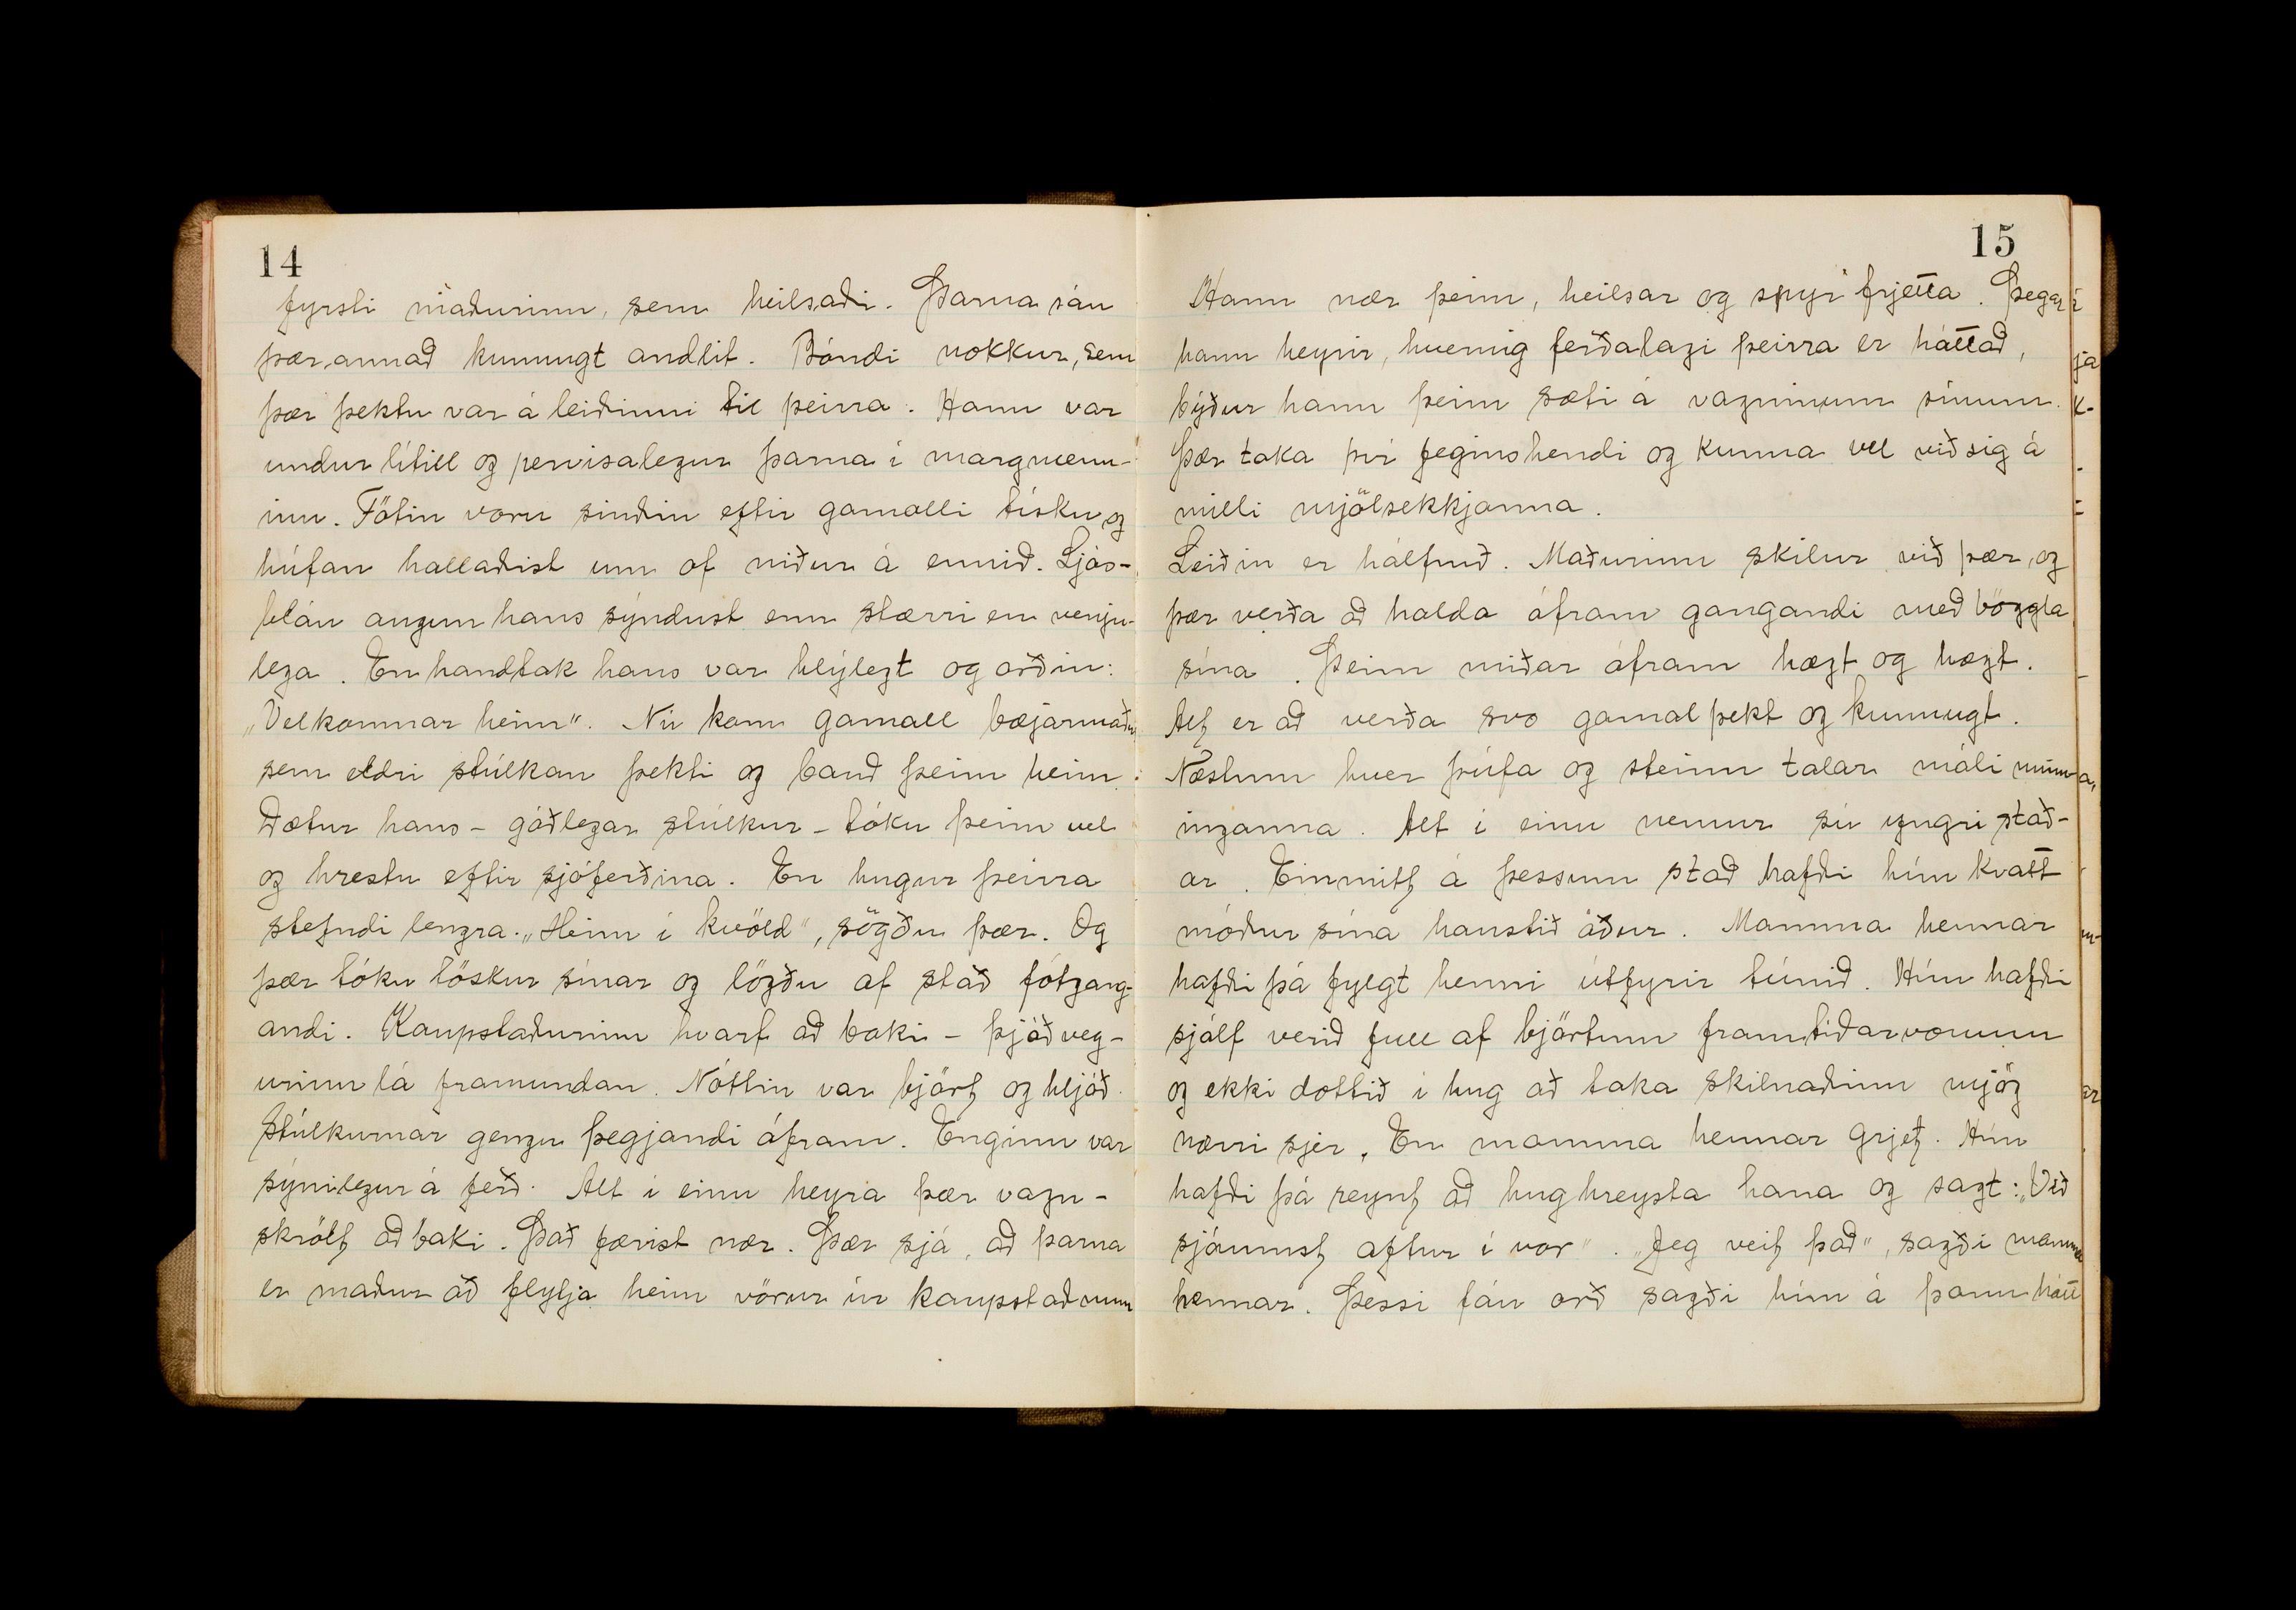 14
fyrsti maðurinn, sem heilsaði. Þarna sáu
þær annað kunnugt andlit. Bóndi nokkur, sem
þær þektu var á leiðinni til þeirra. Hann var
undur lítill og pervisalegur þarna í margmenn-
inu. Fötin voru sniðin eftir gamalli tísku og
húfan hallaðist um of niður á ennið. Ljós-
bláu augun hans sýndust enn stærri en venju-
lega. En handtak hans var hlýlegt og orðin:
„Velkomnar heim". Nú kom gamall bæjarmaður
sem eldri stúlkan þekti og bauð þeim heim.
Dætur hans - góðlegar stúlkur - tóku þeim vel
og hrestu eftir sjóferðina. En hugur þeirra
stefndi lengra. „Heim í kvöld", sögðu þær. Og
þær tóku töskur sínar og lögðu af stað fótgang-
andi. Kaupstaðurinn hvarf að baki - þjóðveg-
urinn lá framundan. Nóttin var björt og hljóð.
Stúlkurnar gengu þegjandi áfram. Enginn var
sýnilegur á ferð. Alt í einu heyra þær vagn-
skrölt að baki. Það færist nær. Þær sjá, að þarna
er maður að flytja heim vörur úr kaupstaðnum
15
Hann nær þeim, heilsar og spyr frjetta. Þegar
hann heyrir, hvernig ferðalagi þeirra er háttað,
býður hann þeim sæti á vagninum sínum.
Þær taka því feginshendi og kunna vel við sig á
milli mjölsekkjanna.
Leiðin er hálfnuð. Maðurinn skilur við þær, og
þær verða að halda áfram gangandi með böggla
sína. Þeim miðar áfram hægt og hægt.
Alt er að verða svo gamalþekt og kunnugt.
Næstum hver þúfa og steinn talar máli minn-
inganna. Alt í einu nemur sú yngri stað-
ar. Einmitt á þessum stað hafði hún kvatt
móður sína haustið áður. Mamma hennar
hafði þá fylgt henni útfyrir túnið. Hún hafði
sjálf verið full af björtum framtíðarvonum
og ekki dottið í hug að taka skilnaðinn mjög
nærri sjer. En mamma hennar grjet. Hún
hafði þá reynt að hughreysta hana og sagt: „Við
sjáumst aftur í vor". „Jeg veit það", sagði mamma
hennar. Þessi fáu orð sagði hún á þann hátt